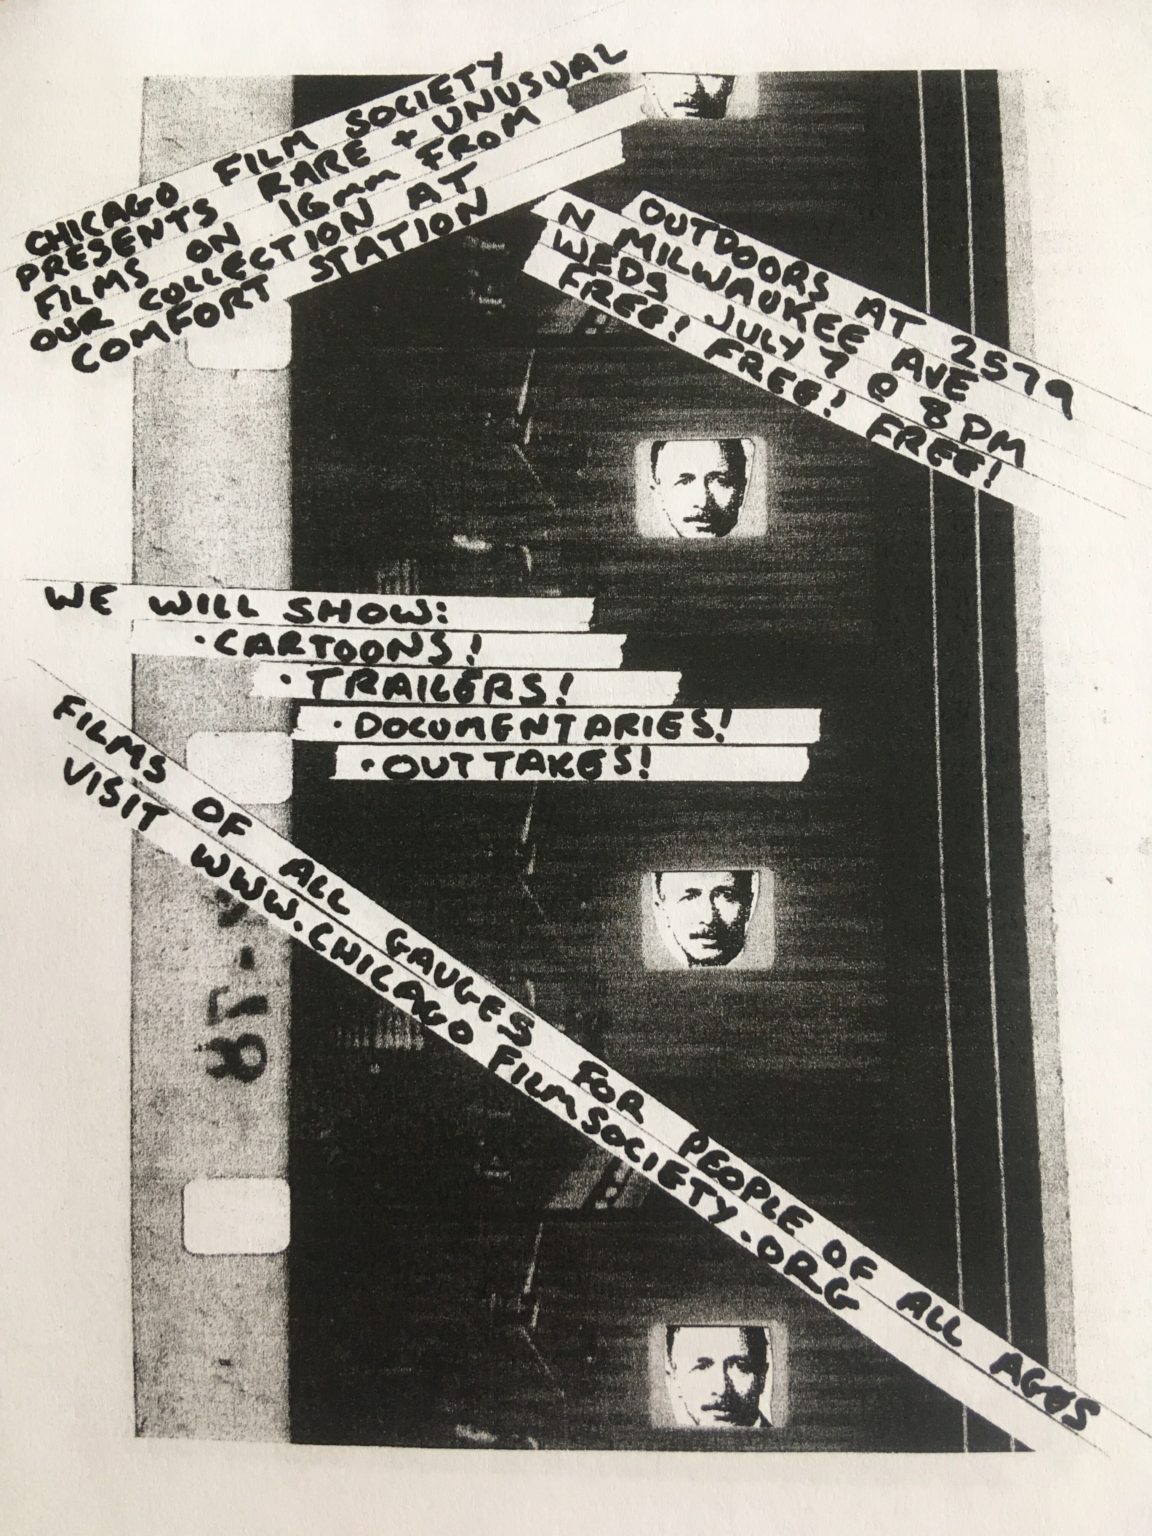 CHICAGO FILM SOCIETY
PRESENTS RARE + UNUSUAL
FILMS ON 16mm FROM
OUR COLLECTION AT
COMFORT STATION
OUTDOORS AT 2579
N MILWAUKEE AVE
WEDS JULY 7 @ 8PM
FREE! FREE! FREE!
WE WILL SHOW:
·CARTOONS!
·TRAILERS!
·DOCUMENTARIES!
·OUTTAKES!
FILMS OF ALL GAUGES FOR PEOPLE OF ALL AGES
VISIT WWW.CHICAGOFILMSOCIETY.ORG